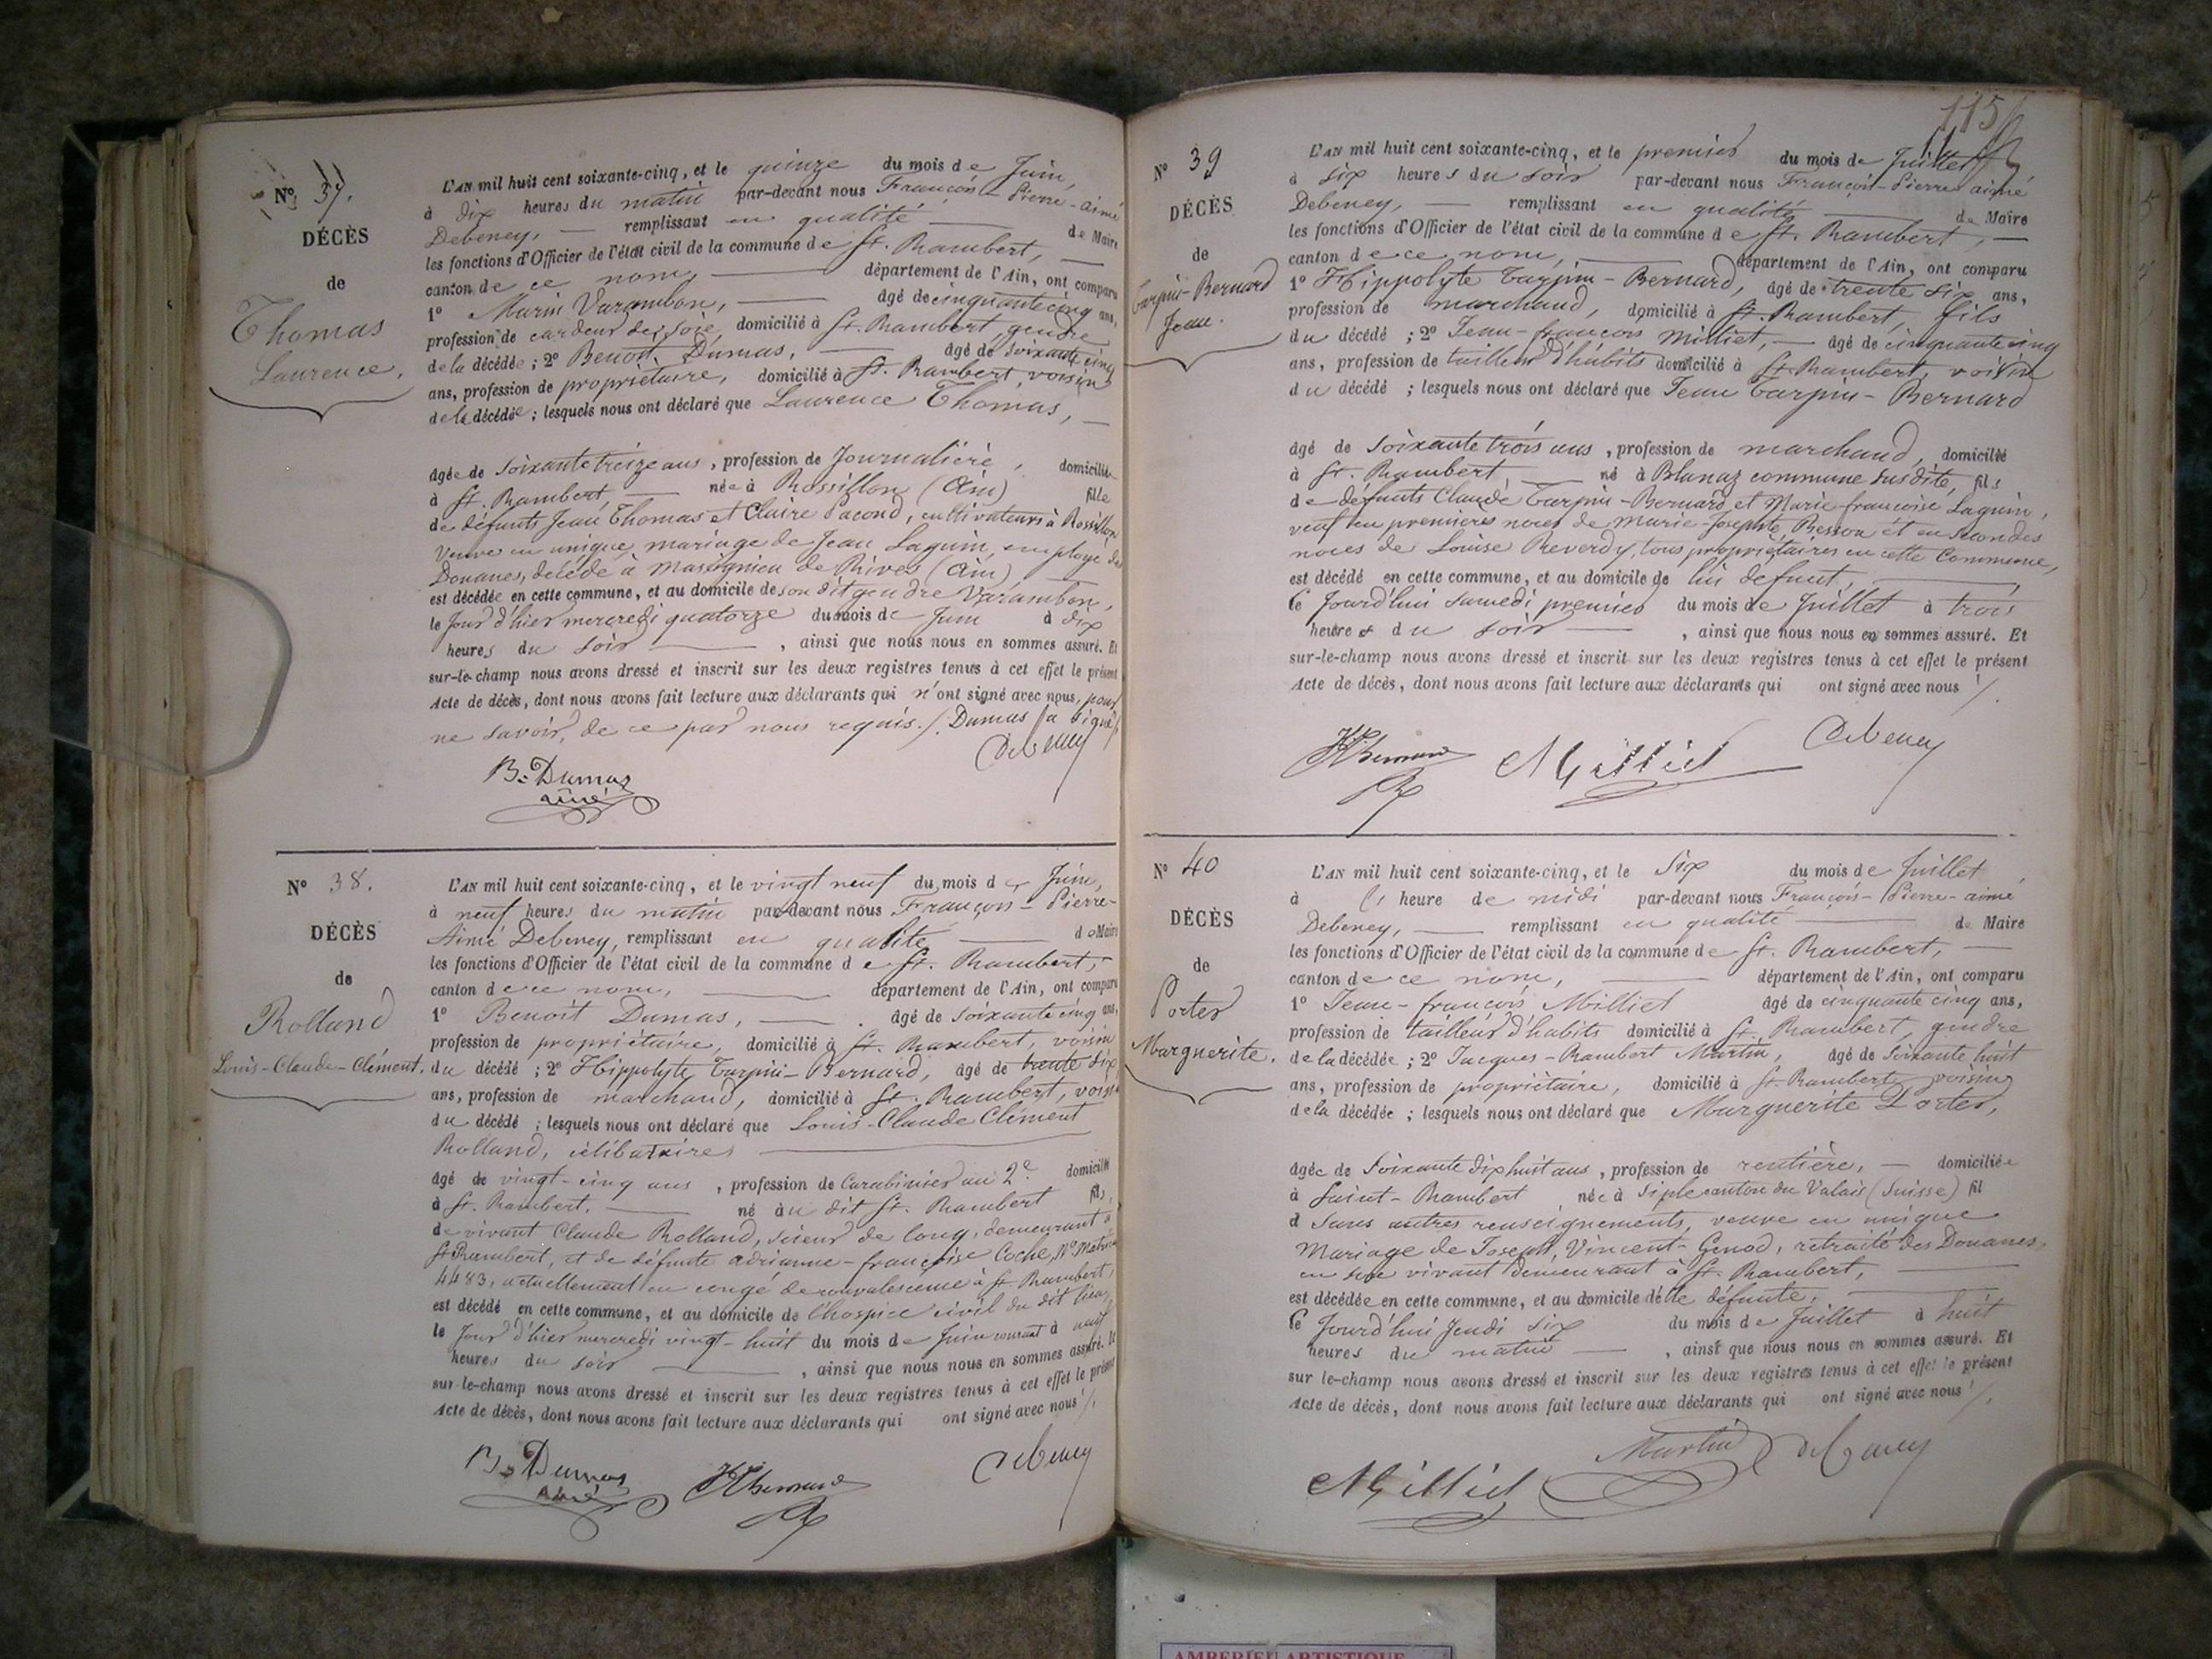 Nº 37.
DÉCÈS
de
Thomas
Laurence.
L'AN mil huit cent soixante-cinq, et le quinze du mois de Juin,
à dix heures du matin par-devant nous François-Pierre-aimé
Debeney, remplissant en qualité de Maire
les fonctions d'Officier de l'état civil de la commune de St. Rambert,
canton de ce nom, département de l'Ain, ont comparu
1º Marin Varambon, âgé de cinquante cinq ans,
profession de cardeur de soie, domicilié à St. Rambert, gendre
de la décédée ; 2º Benoit Dumas, âgé de soixante cinq
ans, profession de propriétaire, domicilié à St. Rambert, voisin
de la décédée ; lesquels nous ont déclaré que Laurence Thomas,
âgée de soixante treize ans, profession de Journalière, domiciliée
à St. Rambert, née à Rossillon (Ain) fille
de défunts Jean Thomas et Claire Pacond, cultivateurs à Rossillon
Veuve en unique mariage de Jean Laguin, employé des
Douanes, décédé à Massignieu de Rives (Ain)
est décédée en cette commune, et au domicile de son dit gendre Varambon,
le Jour d'hier mercredi quatorze du mois de Juin à dix
heures du soir, ainsi que nous nous en sommes assuré. Et
sur-le-champ nous avons dressé et inscrit sur les deux registres tenus à cet effet le présent
Acte de décès, dont nous avons fait lecture aux déclarants qui n'ont signé avec nous, pour
ne savoir, de ce par nous requis ./. Dumas /a signé/
Debeney
B. Dumas
ainé
Nº 38.
DÉCÈS
de
Rolland
Louis-Claude-Clément.
L'AN mil huit cent soixante-cinq, et le vingt neuf du mois de Juin,
à neuf heures du matin par-devant nous François-Pierre-
Aimé Debeney, remplissant en qualité de Maire
les fonctions d'Officier de l'état civil de la commune de St. Rambert,
canton de ce nom, département de l'Ain, ont comparu
1º Benoit Dumas, âgé de soixante cinq ans,
profession de propriétaire, domicilié à St. Rambert, voisin
du décédé ; 2º Hippolyte Tarpin-Bernard, âgé de trente six
ans, profession de marchand, domicilié à St. Rambert, voisin
du décédé ; lesquels nous ont déclaré que Louis-Claude Clément
Rolland, célibataire
âgé de vingt-cinq ans, profession de Carabinier au 2e. domicilié
à St. Rambert, né au dit St. Rambert fils,
de vivant Claude Rolland, scieur de long, demeurant à
St Rambert, et de défunte adrianne-françoise Coche, Nº Matricule
4483, actuellement en congé de convalescence à St. Rambert,
est décédé en cette commune, et au domicile de l'hospice civil du dit lieu,
le Jour d'hier mercredi vingt-huit du mois de Juin courant à neuf
heures du soir, ainsi que nous nous en sommes assuré. Et
sur-le-champ nous avons dressé et inscrit sur les deux registres tenus à cet effet le présent
Acte de décès, dont nous avons fait lecture aux déclarants qui ont signé avec nous ./.
B. Dumas
Ainé
HTBernard
Debeney
115
Nº 39
DÉCÈS
de
Tarpin-Bernard
Jean.
L'AN mil huit cent soixante-cinq, et le premier du mois de Juillet
à six heures du soir par-devant nous François-Pierre aimé
Debeney, remplissant en qualité de Maire
les fonctions d'Officier de l'état civil de la commune de St. Rambert,
canton de ce nom, département de l'Ain, ont comparu
1º Hippolyte Tarpin-Bernard, âgé de trente six ans,
profession de marchand, domicilié à St. Rambert, fils
du décédé ; 2º Jean-françois Milliet, âgé de cinquante cinq
ans, profession de tailleur d'habits domicilié à St. Rambert, voisin
du décédé ; lesquels nous ont déclaré que Jean Tarpin-Bernard
âgé de soixante trois ans, profession de marchand, domicilié
à St. Rambert né à Blanaz commune susdite, fils
de défunts Claude Tarpin-Bernard et Marie françoise Laguin,
veuf en premières noces de Marie-Josephte Besson et en secondes
noces de Louise Reverdy, tous propriétaires en cette Commune,
est décédé en cette commune, et au domicile de lui défunt,
le Jourd'hui samedi premier du mois de Juillet à trois
heures du soir, ainsi que nous nous en sommes assuré. Et
sur-le-champ nous avons dressé et inscrit sur les deux registres tenus à cet effet le présent
Acte de décès, dont nous avons fait lecture aux déclarants qui ont signé avec nous ./.
HTBernard
Milliet
Debeney
Nº 40
DÉCÈS
de
Porter
Marguerite.
L'AN mil huit cent soixante-cinq, et le six du mois de Juillet
à l' heure de midi par-devant nous François-Pierre-aimé
Debeney, remplissant en qualité de Maire
les fonctions d'Officier de l'état civil de la commune de St. Rambert,
canton de ce nom, département de l'Ain, ont comparu
1º Jean-françois Milliet âgé de cinquante cinq ans,
profession de tailleur d'habits domicilié à St. Rambert, gendre
de la décédée ; 2º Jacques-Rambert Martin, âgé de soixante huit
ans, profession de propriétaire, domicilié à St. Rambert, voisin
de la décédée ; lesquels nous ont déclaré que Marguerite Porter,
âgée de soixante dix huit ans, profession de rentière, domiciliée
à Saint-Rambert née à Siple canton du Valais (Suisse) fil
d sans autres renseignements, veuve en unique
Mariage de Joseph, Vincent-Genod, retraité des Douanes,
en son vivant demeurant à St. Rambert,
est décédée en cette commune, et au domicile d'elle défunte,
le Jourd'hui Jeudi six du mois de Juillet à huit
heures du matin, ainsi que nous nous en sommes assuré. Et
sur le-champ nous avons dressé et inscrit sur les deux registres tenus à cet effet le présent
Acte de décès, dont nous avons fait lecture aux déclarants qui ont signé avec nous ./.
Martin
Debeney
Milliet
AMBERIEU ARTISTIQUE